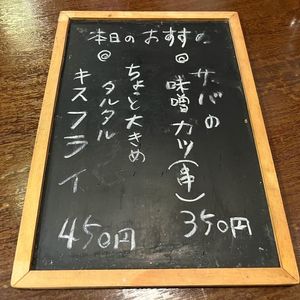 本日のおすすめ
◎
サバの
味噌カツ(串)
350円
◎
ちょと大きめ
タルタル
キスフライ
450円